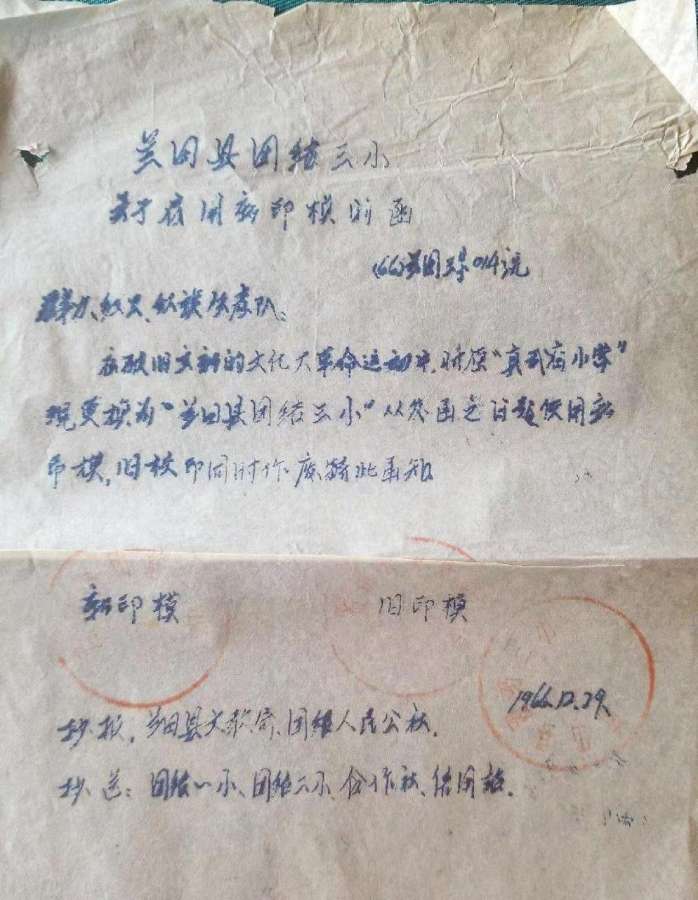 兰田县团结三小
关于启用新印模的函
(66)兰团三字014号
红火、红旗 队:
在破旧立新的文化大革命运动中,将原"真武宫小学"
现更换为"兰田县团结三小"从发函之日起使用新
印模,旧校印同时作废特此函知
新印模 旧印模
1966.12.29.
抄报,兰田县文教局、团结人民公社.
抄送:团结一小、团结二小、合作社、信用站.